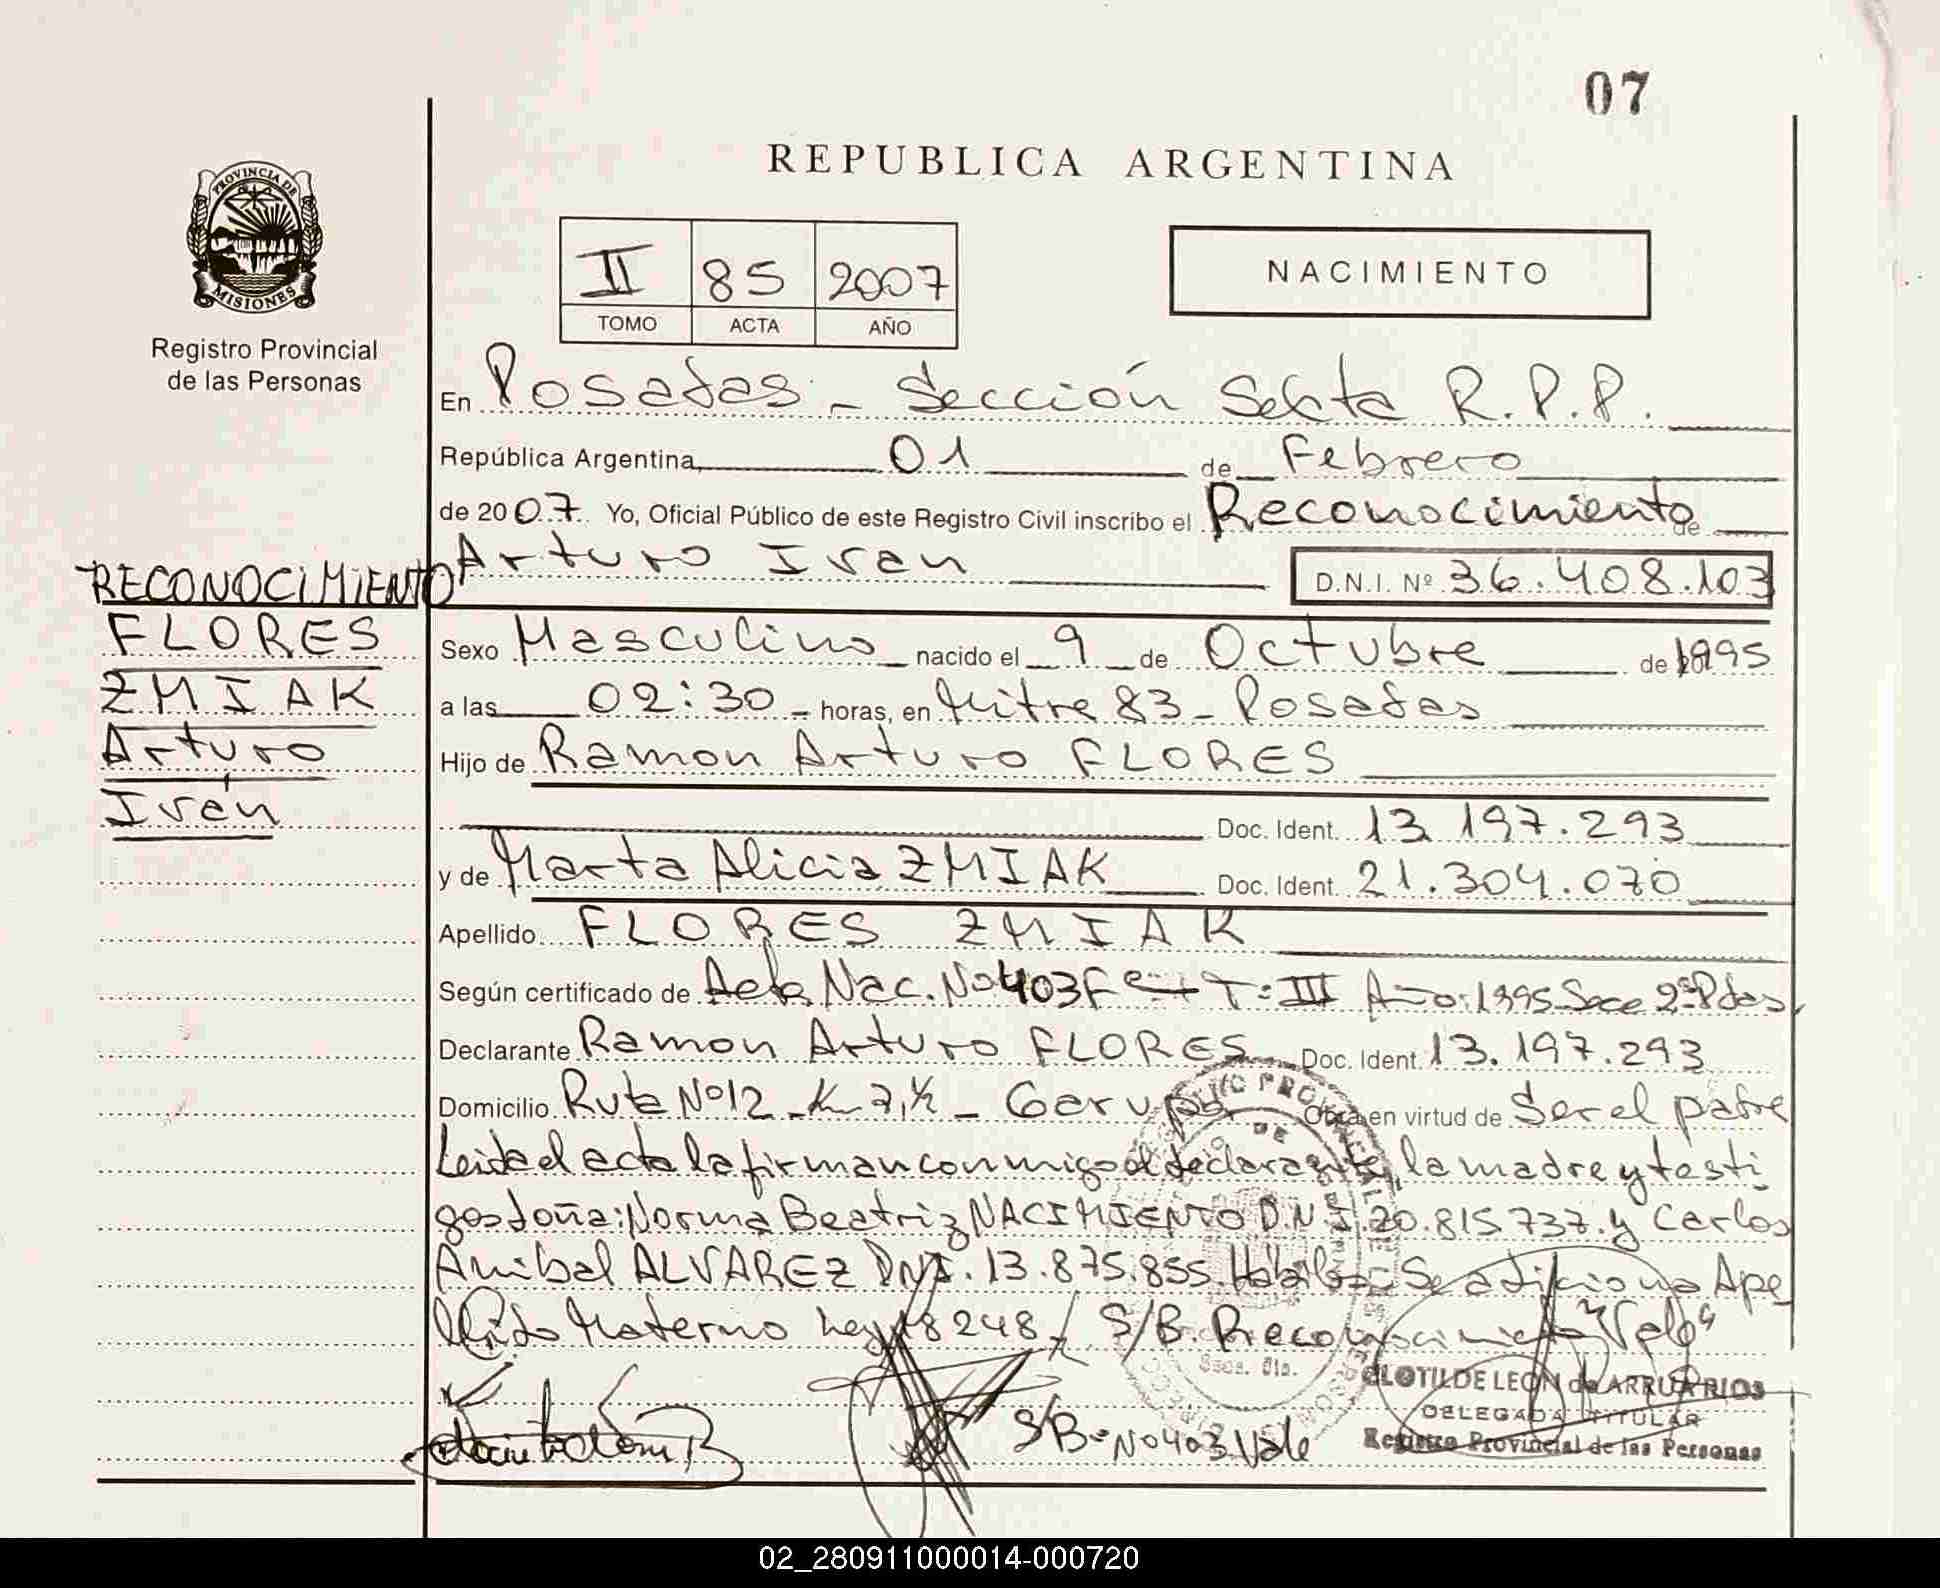 07
REPUBLICA ARGENTINA
PROVINCIA DE
MISIONES
Registro Provincial
de las Personas
II 85 2007
TOMO ACTA AÑO
NACIMIENTO
En Posadas - Sección Sexta R.P.P.
República Argentina, 01 de Febrero
de 2007 Yo, Oficial Público de este Registro Civil inscribo el Reconocimiento de
Arturo Ivan D.N.I. Nº 36.408.103
RECONOCIMIENTO
FLORES
ZMIAK
Arturo
Iván
Sexo Masculino nacido el 9 de Octubre de 1995
a las 02:30 - horas, en Mitre 83 - Posadas
Hijo de Ramon Arturo FLORES
Doc. Ident. 13.197.293
y de Marta Alicia ZMIAK Doc. Ident. 21.304.070
Apellido FLORES ZMIAK
Según certificado de Acta Nac. Nº 403 T: III Año: 1995 Secc 2ª Pdas,
Declarante Ramon Arturo FLORES Doc. Ident. 13.197.293
Domicilio Ruta Nº 12 - Km 7,½ - Garupá. Obra en virtud de Ser el padre
Leida el acta la firman conmigo el declarante, la madre y testi
gos doña: Norma Beatriz NACIMIENTO D.N.I. 20.815.737. y Carlos
Anibal ALVAREZ DNI. 13.875.855. Hábiles - Se adiciona Ape
llido Materno Ley 18248/ S/B. Reconocimiento "Vale"
S/B - Nº 403 Vale
CLOTILDE LEON de ARRUA RIOS
DELEGADA TITULAR
Registro Provincial de las Personas
02_280911000014-000720